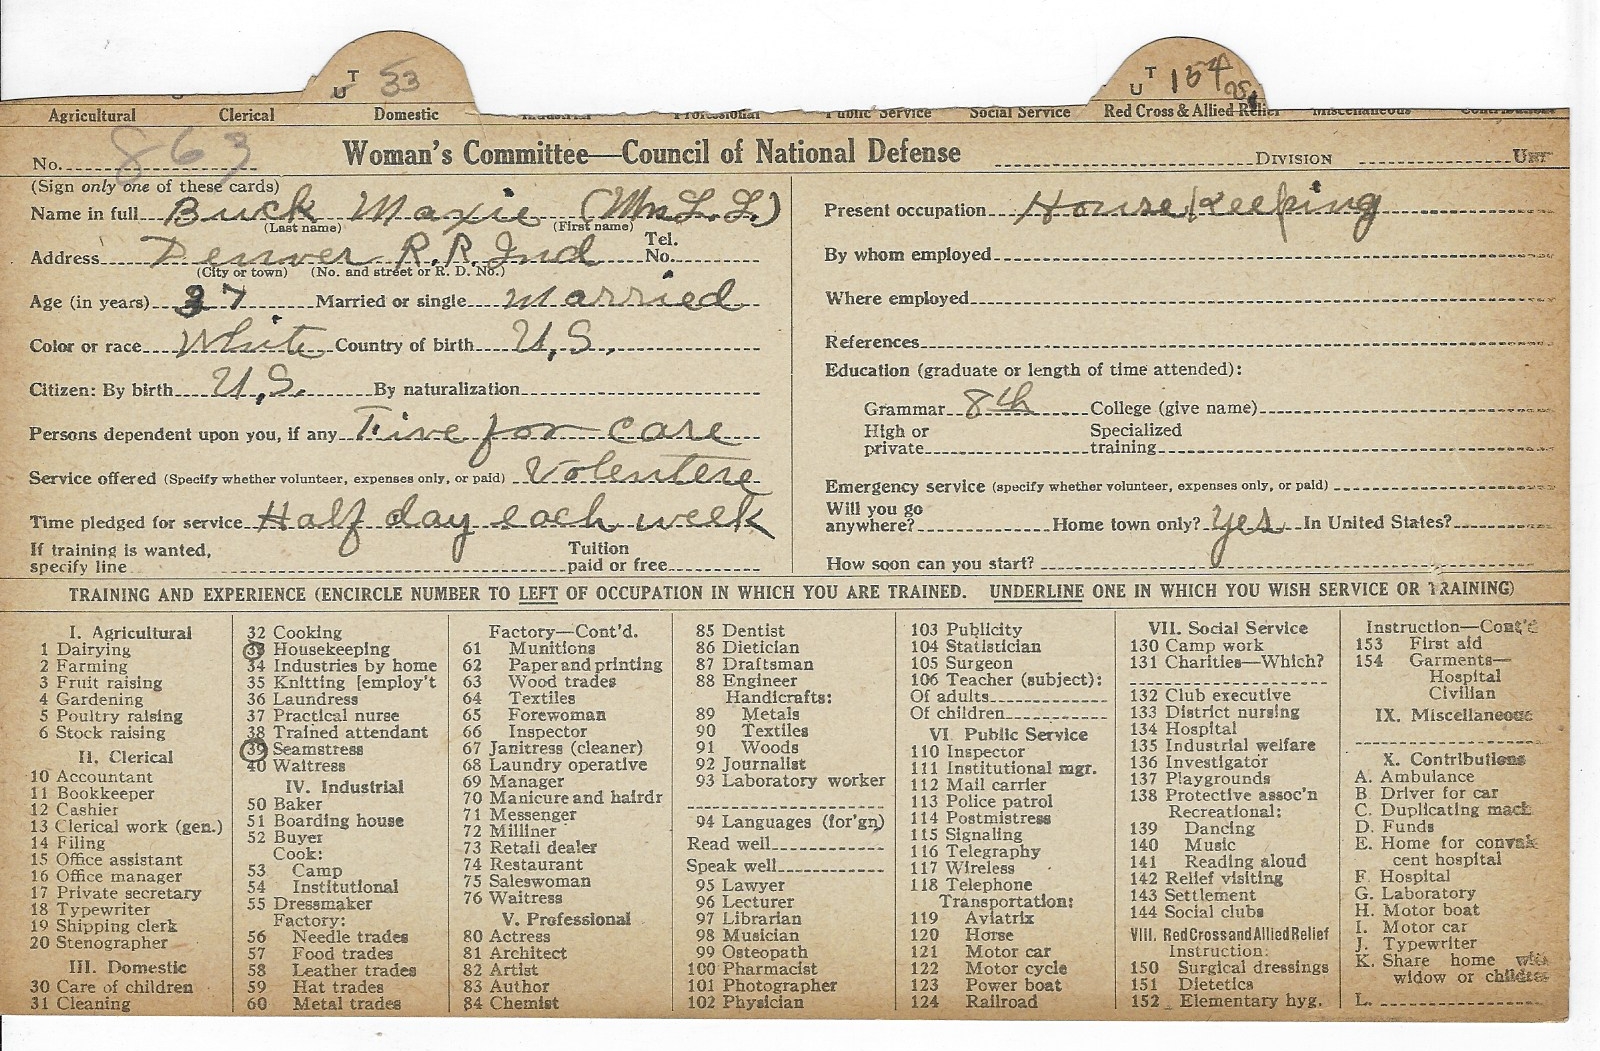 T
U 33
T
U 154
Agricultural Clerical Domestic Industrial Professional Public Service Social Service Red Cross & Allied Relief Miscellaneous Contributions
No. 863 Woman's Committee—Council of National Defense DIVISION UNIT
(Sign only one of these cards)
Name in full Buck Maxie (Mrs L. L.)
(Last name) (First name)
Address Denver R.R. Ind Tel. No.
(City or town) (No. and street or R. D. No.)
Age (in years) 37 Married or single Married
Color or race White Country of birth U,S.
Citizen: By birth U,S. By naturalization
Persons dependent upon you, if any Five for care
Service offered (Specify whether volunteer, expenses only, or paid) Volentere
Time pledged for service Half day each week
If training is wanted, specify line Tuition paid or free
Present occupation House keeping
By whom employed
Where employed
References
Education (graduate or length of time attended):
Grammar 8th College (give name)
High or private Specialized training
Emergency service (specify whether volunteer, expenses only, or paid)
Will you go anywhere? Home town only? Yes In United States?
How soon can you start?
TRAINING AND EXPERIENCE (ENCIRCLE NUMBER TO LEFT OF OCCUPATION IN WHICH YOU ARE TRAINED. UNDERLINE ONE IN WHICH YOU WISH SERVICE OR TRAINING)
I. Agricultural
1 Dairying
2 Farming
3 Fruit raising
4 Gardening
5 Poultry raising
6 Stock raising
II. Clerical
10 Accountant
11 Bookkeeper
12 Cashier
13 Clerical work (gen.)
14 Filing
15 Office assistant
16 Office manager
17 Private secretary
18 Typewriter
19 Shipping clerk
20 Stenographer
III. Domestic
30 Care of children
31 Cleaning
32 Cooking
33 Housekeeping
34 Industries by home
35 Knitting [employ't
36 Laundress
37 Practical nurse
38 Trained attendant
39 Seamstress
40 Waitress
IV. Industrial
50 Baker
51 Boarding house
52 Buyer
Cook:
53 Camp
54 Institutional
55 Dressmaker
Factory:
56 Needle trades
57 Food trades
58 Leather trades
59 Hat trades
60 Metal trades
Factory—Cont'd.
61 Munitions
62 Paper and printing
63 Wood trades
64 Textiles
65 Forewoman
66 Inspector
67 Janitress (cleaner)
68 Laundry operative
69 Manager
70 Manicure and hairdr
71 Messenger
72 Milliner
73 Retail dealer
74 Restaurant
75 Saleswoman
76 Waitress
V. Professional
80 Actress
81 Architect
82 Artist
83 Author
84 Chemist
85 Dentist
86 Dietician
87 Draftsman
88 Engineer
Handicrafts:
89 Metals
90 Textiles
91 Woods
92 Journalist
93 Laboratory worker
94 Languages (for'gn)
Read well
Speak well
95 Lawyer
96 Lecturer
97 Librarian
98 Musician
99 Osteopath
100 Pharmacist
101 Photographer
102 Physician
103 Publicity
104 Statistician
105 Surgeon
106 Teacher (subject):
Of adults
Of children
VI. Public Service
110 Inspector
111 Institutional mgr.
112 Mail carrier
113 Police patrol
114 Postmistress
115 Signaling
116 Telegraphy
117 Wireless
118 Telephone
Transportation:
119 Aviatrix
120 Horse
121 Motor car
122 Motor cycle
123 Power boat
124 Railroad
VII. Social Service
130 Camp work
131 Charities—Which?
132 Club executive
133 District nursing
134 Hospital
135 Industrial welfare
136 Investigator
137 Playgrounds
138 Protective assoc'n
Recreational:
139 Dancing
140 Music
141 Reading aloud
142 Relief visiting
143 Settlement
144 Social clubs
VIII. Red Cross and Allied Relief
Instruction:
150 Surgical dressings
151 Dietetics
152 Elementary hyg.
Instruction—Cont'd
153 First aid
154 Garments—
Hospital
Civilian
IX. Miscellaneous
X. Contributions
A. Ambulance
B Driver for car
C. Duplicating mach
D. Funds
E. Home for conval
cent hospital
F. Hospital
G. Laboratory
H. Motor boat
I. Motor car
J. Typewriter
K. Share home with
widow or children
L.